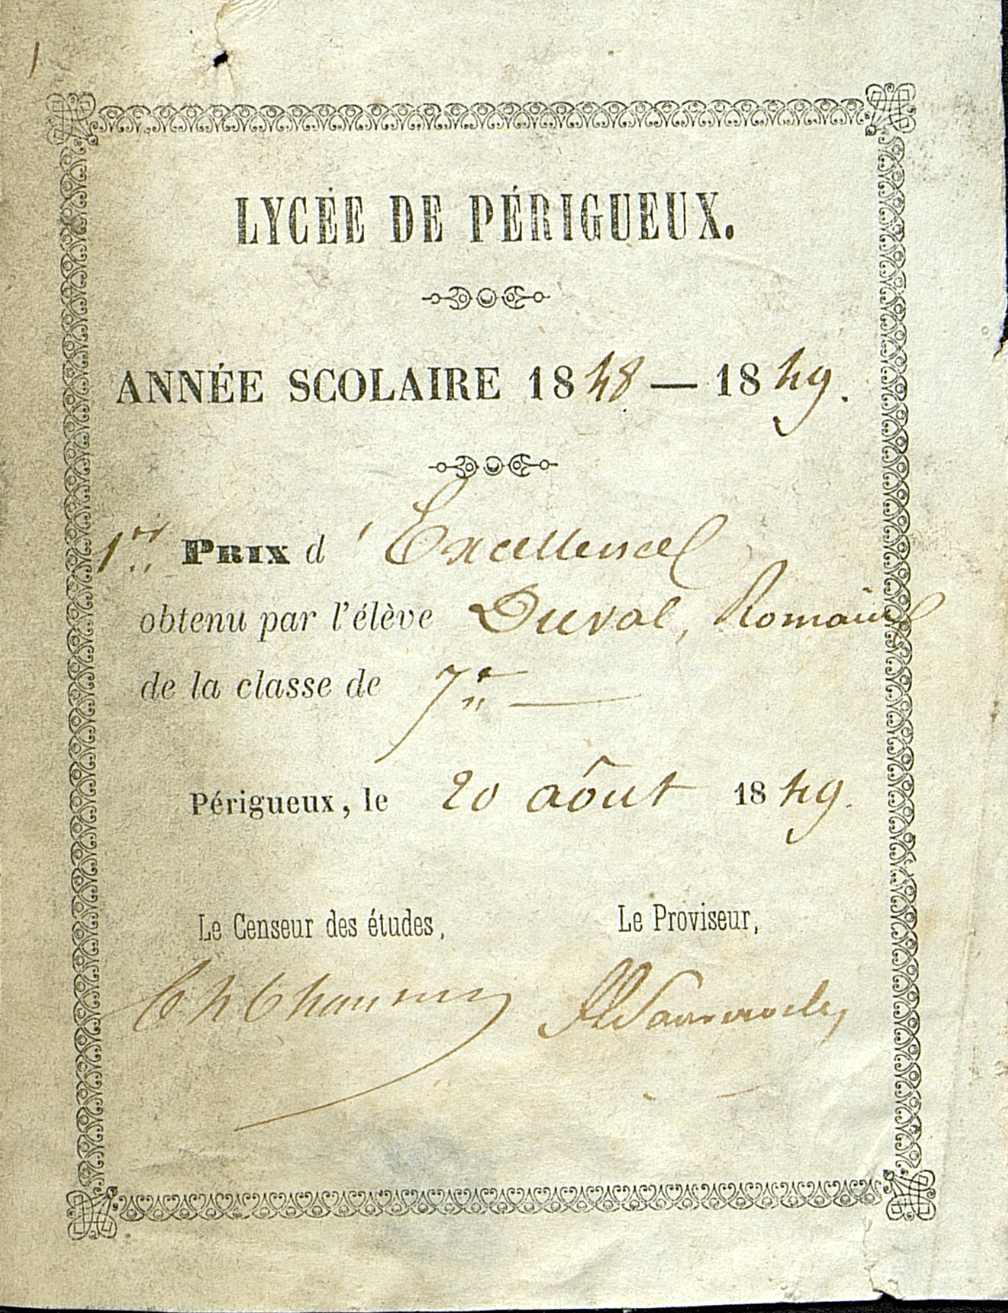 LYCÉE DE PÉRIGUEUX.
ANNÉE SCOLAIRE 1848 — 1849.
1er PRIX d'Excellence
obtenu par l'élève Duval, Romain
de la classe de 7e —
Périgueux, le 20 aôut 1849.
Le Censeur des études, Le Proviseur,